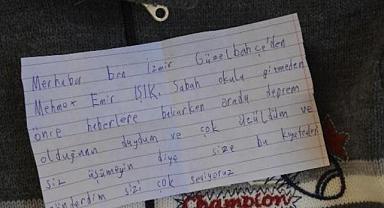 Merhaba ben İzmir Güzelbahçe'den
Mehmet Emir IŞIK. Sabah okula gitmeden
önce haberlere bakarken orada deprem
olduğunu duydum ve çok üzüldüm ve
siz üşümeyin diye size bu kıyafetleri
gönderdim sizi çok seviyoruz
Champion